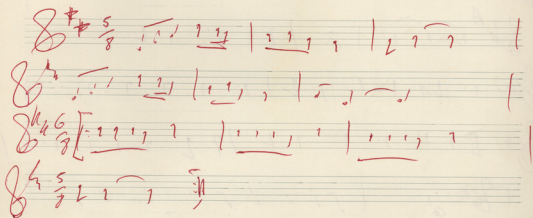 5
8
6
8
5